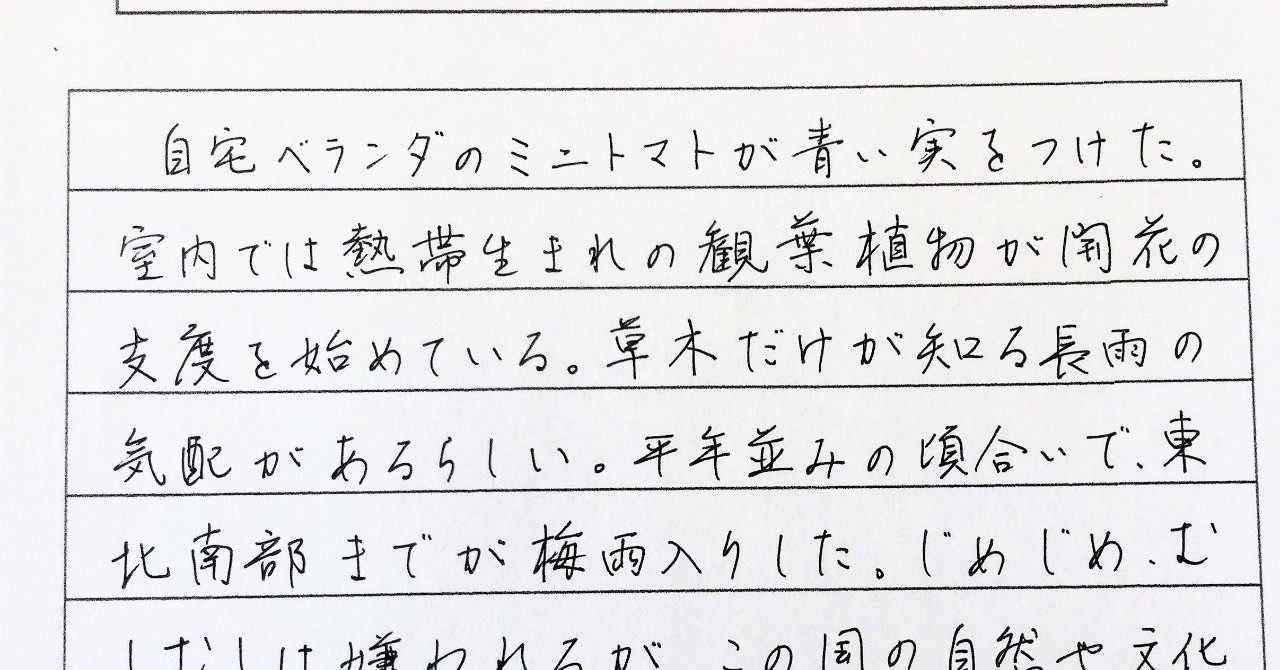 自宅ベランダのミニトマトが青い実をつけた。
室内では熱帯生まれの観葉植物が開花の
支度を始めている。草木だけが知る長雨の
気配があるらしい。平年並みの頃合いで、東
北南部までが梅雨入りした。じめじめ、む
しむしは嫌われるが、この国の自然や文化